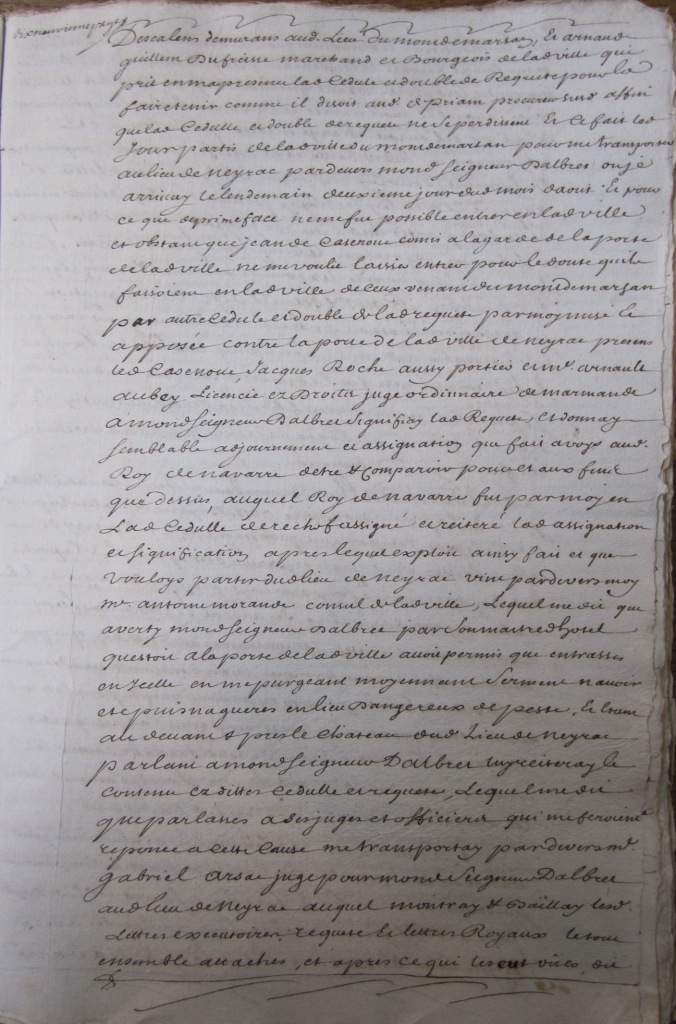 dixneuviemepage
Descalens demurans aud. Lieu du montdemarsan, Et arnaud
guillem Dufraisse marchand et Bourgeois de lad ville qui
prit en ma presence lad Cedule et double de Requete pour la
faire tenir comme il disoit aud cypriam procureur susd affin
que lad Cedulle et double de requete ne se perdissent Et Ce fait led
Jour partis de lad ville du montdemarsan pour me transporter
au lieu de neyrac pardevers mond Seigneur Dalbret ou je
arrivay le lendemain deuxieme jour dud mois daout. Et pour
ce que de prime face ne me fut possible entrer en lad ville
et obstant que jean de Casenoue comis a la garde de la porte
de lad ville ne me voulut laisser entrer pour le doute quils
faisoient en lad ville de Ceux venant du montdemarsan
par autre Cedule et double de lad requete par moy mise et
apposée contre la porte de lad ville de neyrac presens
led Casenoue, Jacques Roche aussy portier et mr. arnault
aubey Licencié ez Droits juge ordinnaire de marmande
a mond Seigneur Dalbret signifiay lad Requete, et donnay
semblable adjournement et assignation que fait avoys aud.
Roy de navarre detre & Comparoir pour et aux fins
que dessus, auquel Roy de navarre fut par moy en
Lad Cedulle derechef assigné et reiteré lad assignation
et signification apres lequel exploit ainsy fait et que
vouloys partir dud lieu de neyrac vint pardevers moy
mr. antoine morande consul de lad ville, Lequel me dit que
averty mond Seigneur Dalbret par son maitre dhotel
questoit a la porte de lad ville avoit permis que entrasses
en Icelle en me purgeant moyennant serment n'avoir
eté puis nagueres en lieu Dangereux de peste, Et etant
au devant & pres le Chateau dud Lieu de neyrac
parlant a mond Seigneur Dalbret luy reiteray le
contenu ez dittes Cedulle et requete, Lequel me dit
que parlasses a ses juges et officiers qui me feroient
reponce a Cette Cause me transportay pardevers mr.
gabriel arsac juge pour mond Seigneur Dalbret
aud lieu de neyrac auquel montray & Baillay lesd.
Lettres executoires, requete Et lettres Royaux le tout
ensemble attachés, et apres ce qui les eut vües, dit